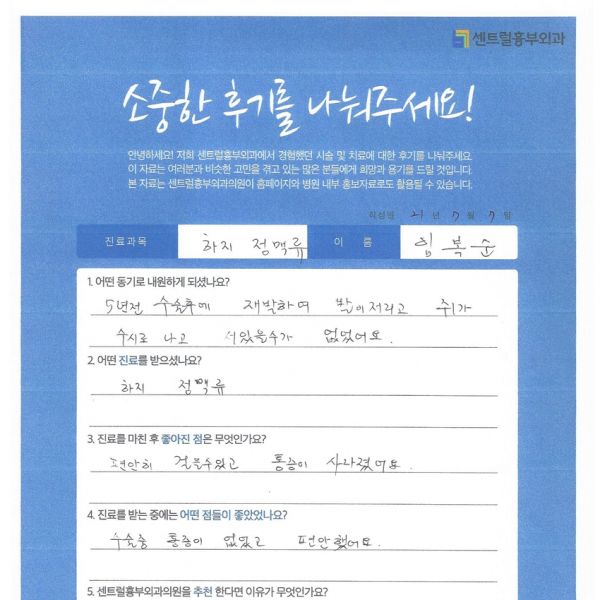 센트럴흉부외과
소중한 후기를 나눠주세요!
안녕하세요! 저희 센트럴흉부외과에서 경험했던 시술 및 치료에 대한 후기를 나눠주세요.
이 자료는 여러분과 비슷한 고민을 겪고 있는 많은 분들에게 희망과 용기를 드릴 것입니다.
본 자료는 센트럴흉부외과의원이 홈페이지와 병원 내부 홍보자료로도 활용될 수 있습니다.
작성일 21 년 7 월 7 일
진료과목 하지 정맥류 이 름 복순
1. 어떤 동기로 내원하게 되셨나요?
5년전 수술후에 재발하여 발이저리고 쥐가
수시로 나고 서있을수가 없었어요.
2. 어떤 진료를 받으셨나요?
하지 정맥류
3. 진료를 마친 후 좋아진 점은 무엇인가요?
편안히 걸을수있고 통증이 사라졌어요.
4. 진료를 받는 중에는 어떤 점들이 좋았었나요?
수술중 통증이 없었고 편안했어요.
5. 센트럴흉부외과의원을 추천 한다면 이유가 무엇인가요?